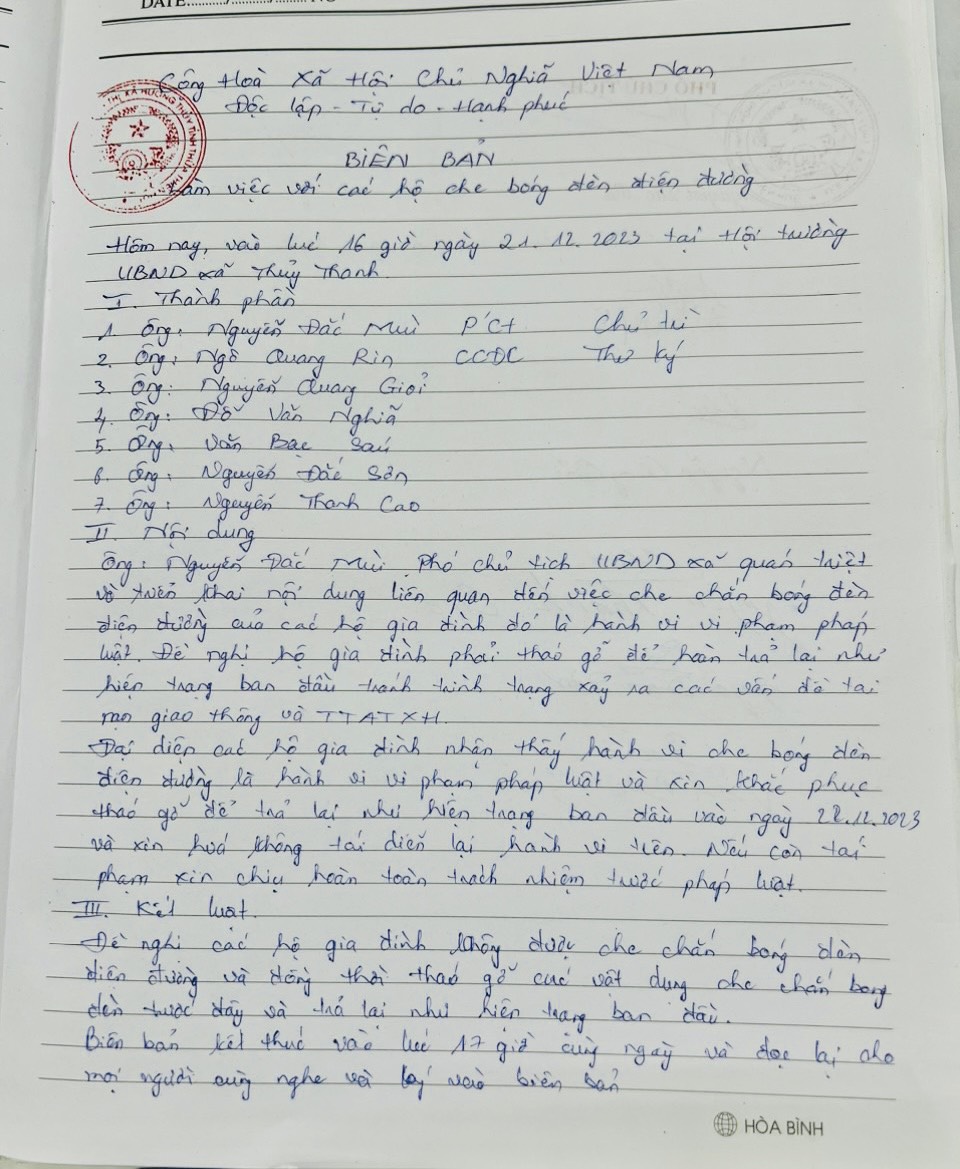 DATE........./........../.......... NO
Cộng Hoà Xã Hội Chủ Nghĩa Việt Nam
Độc lập - Tự do - Hạnh phúc
THỊ XÃ HƯƠNG THỦY TỈNH THỪA THIÊN
PHÓ CHỦ TỊCH
BIÊN BẢN
Làm việc với các hộ che bóng đèn điện đường
Hôm nay, vào lúc 16 giờ ngày 21.12.2023 tại Hội trường
UBND xã Thủy Thanh.
I. Thành phần
1. Ông: Nguyễn Đắc Mùi PCT Chủ trì
2. Ông: Ngô Quang Rin CCĐC Thư ký
3. Ông: Nguyễn Quang Giỏi
4. Ông: Đỗ Văn Nghĩa
5. Ông: Văn Bạc Sáu
6. Ông: Nguyễn Đắc Sơn
7. Ông: Nguyễn Thanh Cao
II. Nội dung
Ông: Nguyễn Đắc Mùi Phó chủ tịch UBND xã quán triệt
và triển khai nội dung liên quan đến việc che chắn bóng đèn
điện đường của các hộ gia đình đó là hành vi vi phạm pháp
luật. Đề nghị hộ gia đình phải tháo gỡ để hoàn trả lại như
hiện trạng ban đầu tránh trình trạng xảy ra các vấn đề tai
nạn giao thông và TTATXH.
Đại diện các hộ gia đình nhận thấy hành vi che bóng đèn
điện đường là hành vi vi phạm pháp luật và xin khắc phục
tháo gỡ để trả lại như hiện trạng ban đầu vào ngày 22.12.2023
và xin hứa không tái diễn lại hành vi trên. Nếu còn tái
phạm xin chịu hoàn toàn trách nhiệm trước pháp luật.
III. Kết luật.
Đề nghị các hộ gia đình không được che chắn bóng đèn
điện đường và đồng thời tháo gỡ các vật dụng che chắn bóng
đèn trước đây và trả lại như hiện trạng ban đầu.
Biên bản kết thúc vào lúc 17 giờ cùng ngày và đọc lại cho
mọi người cùng nghe và ký vào biên bản
HÒA BÌNH